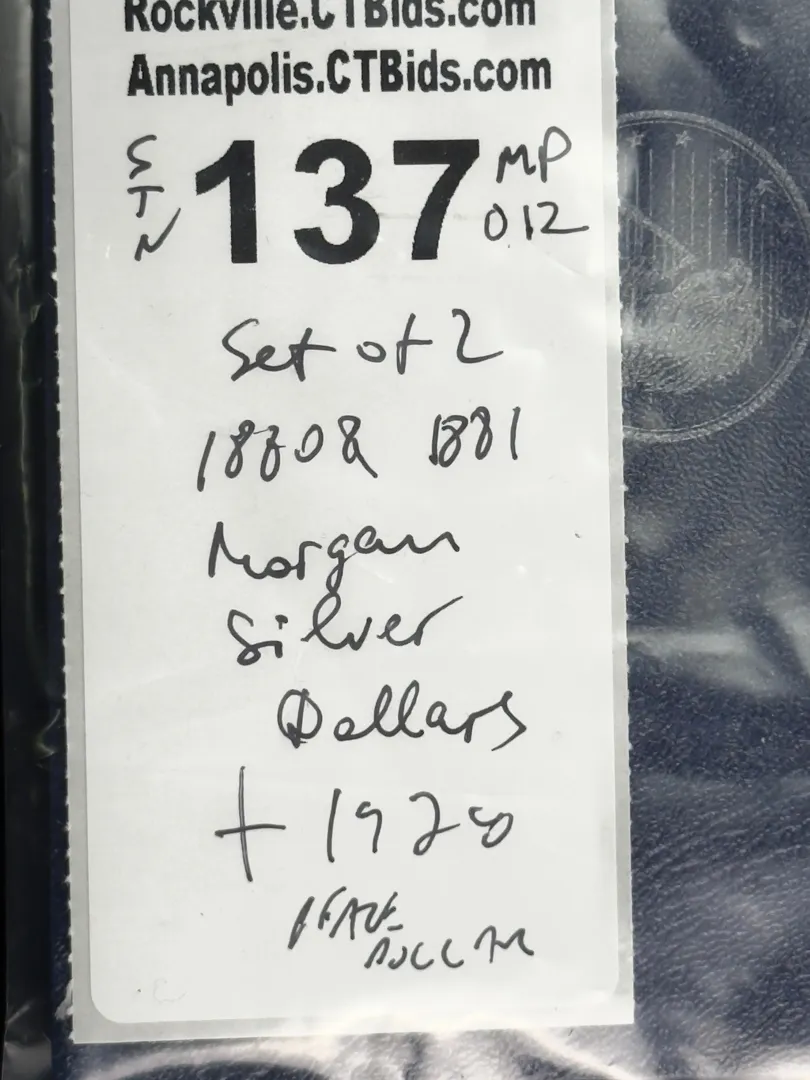 Rockville.CTBids.com
Annapolis.CTBids.com
STN 137 MP 012
Set of 2
1880 & 1881
Morgan
Silver
Dollars
+ 1928
PEACE
DOLLAR